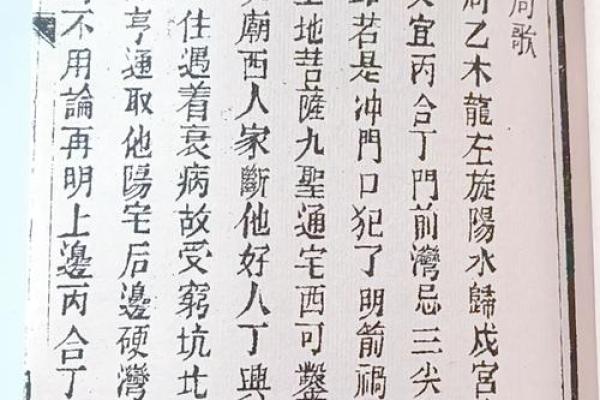 歌
乙木龍左旋陽水歸戍宮
宜丙合丁門前灣忌三尖
若是冲門口犯了明箭禍
地菩薩九聖通宅西可鑿
廟西人家斷他好人丁興
住遇着衰病故受窮坑
亨通取他陽宅后邊硬灣
不用論再明上邊丙合丁